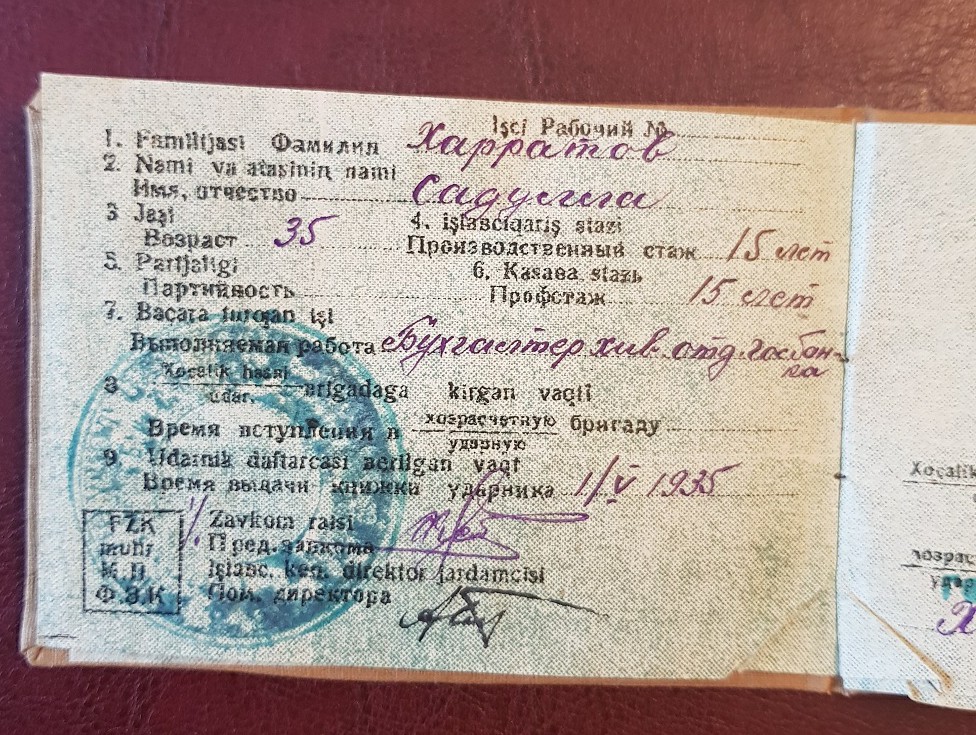 Işci Рабочий №
1. Familijasi Фамилия Харратов
2. Nami va atasiniŋ nami
Имя, отчество Садулла
3 Jaşi
Возраст 35
4. işlabciqariş stazi
Производственный стаж 15 лет
5. Partjaligi
Партийность
6. Kasaba stazь
Профстаж 15 лет
7. Bacara turojan işi
Выполняемая работа Бухгалтер хив. отд. госбан-
ка
8 Xoçalik hasaj
udar. brigadaga kirgan vaqti
Время вступления в хозрасчетную бригаду
ударную
9 Udarnik daftarcasi berilgan vaqt
Время выдачи книжки ударника 1/V 1935
FZK
muhr
М.П
Ф.З.К
Zavkom raisi
Пред. завкома
işlabc. keŋ. direktor jardamcisi
Пом. директора
Xoçalik
хозрас
удар
Х